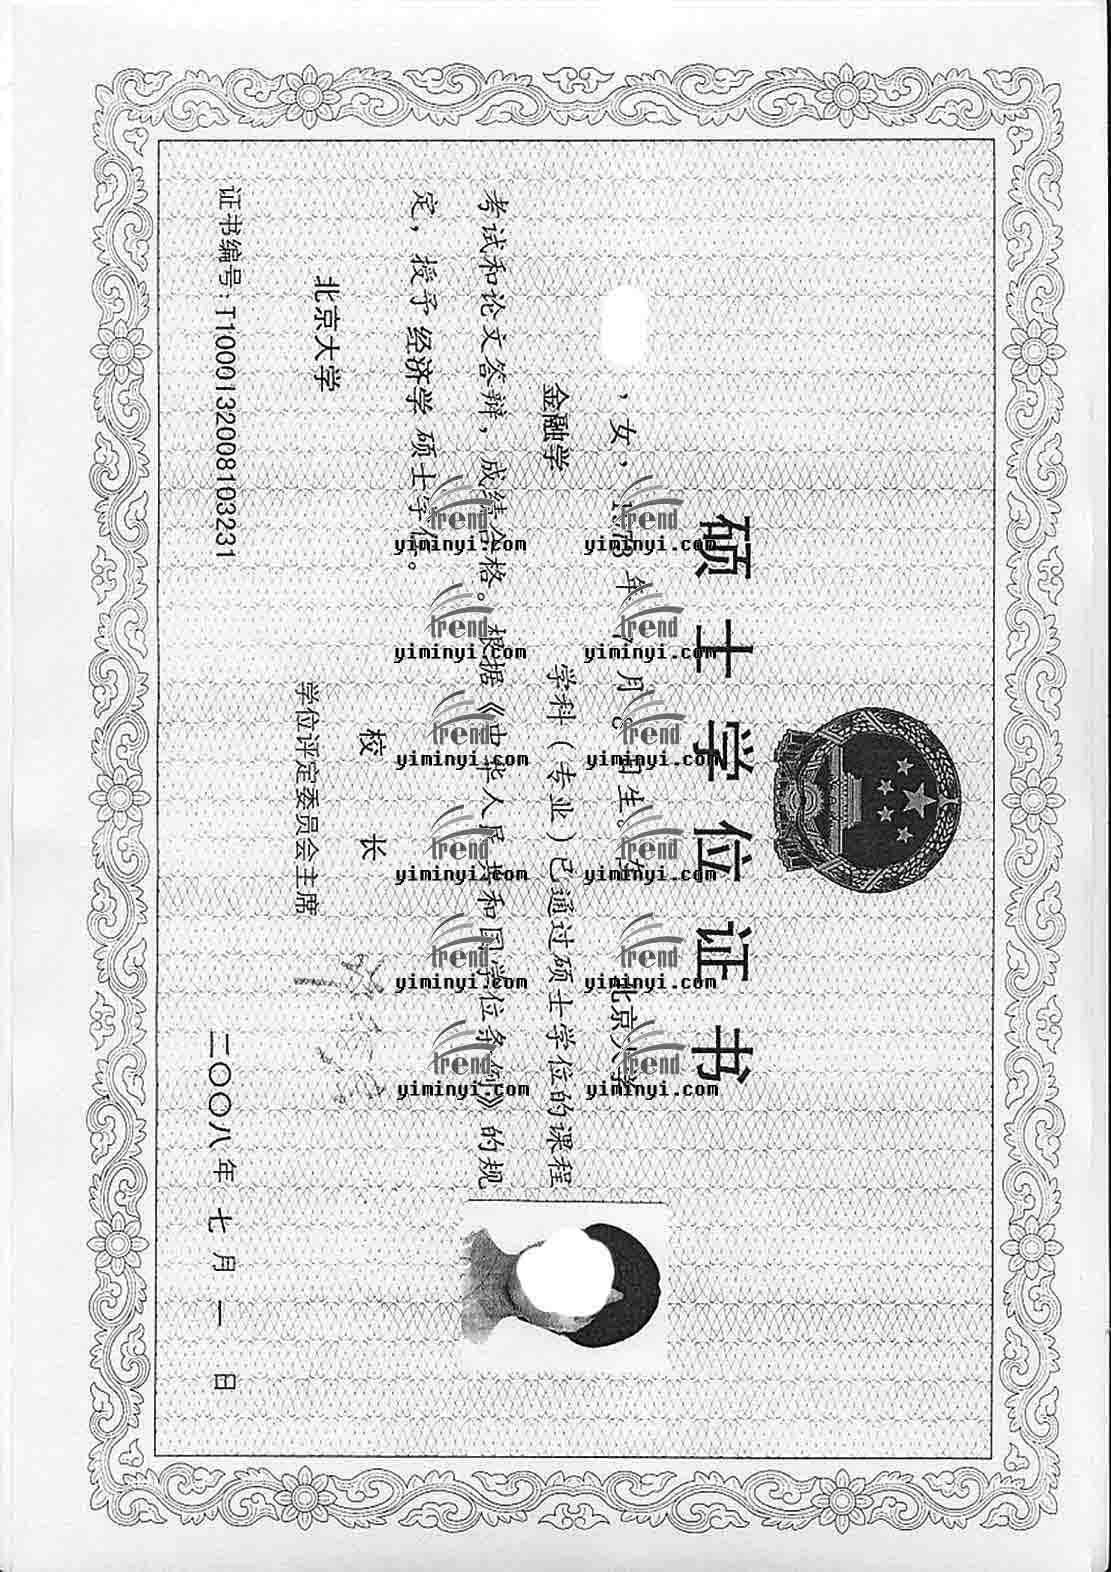 硕士学位证书
，女，1973年7月 日生。在 北京大学
金融学 学科（专业）已通过硕士学位的课程
考试和论文答辩，成绩合格。根据《中华人民共和国学位条例》的规
定，授予 经济学 硕士学位。
北京大学
校 长
学位评定委员会主席
证书编号：T1000132008103231
二〇〇八年七月一日
trend
yiminyi.com
trend
yiminyi.com
trend
yiminyi.com
trend
yiminyi.com
trend
yiminyi.com
trend
yiminyi.com
trend
yiminyi.com
trend
yiminyi.com
trend
yiminyi.com
trend
yiminyi.com
trend
yiminyi.com
trend
yiminyi.com